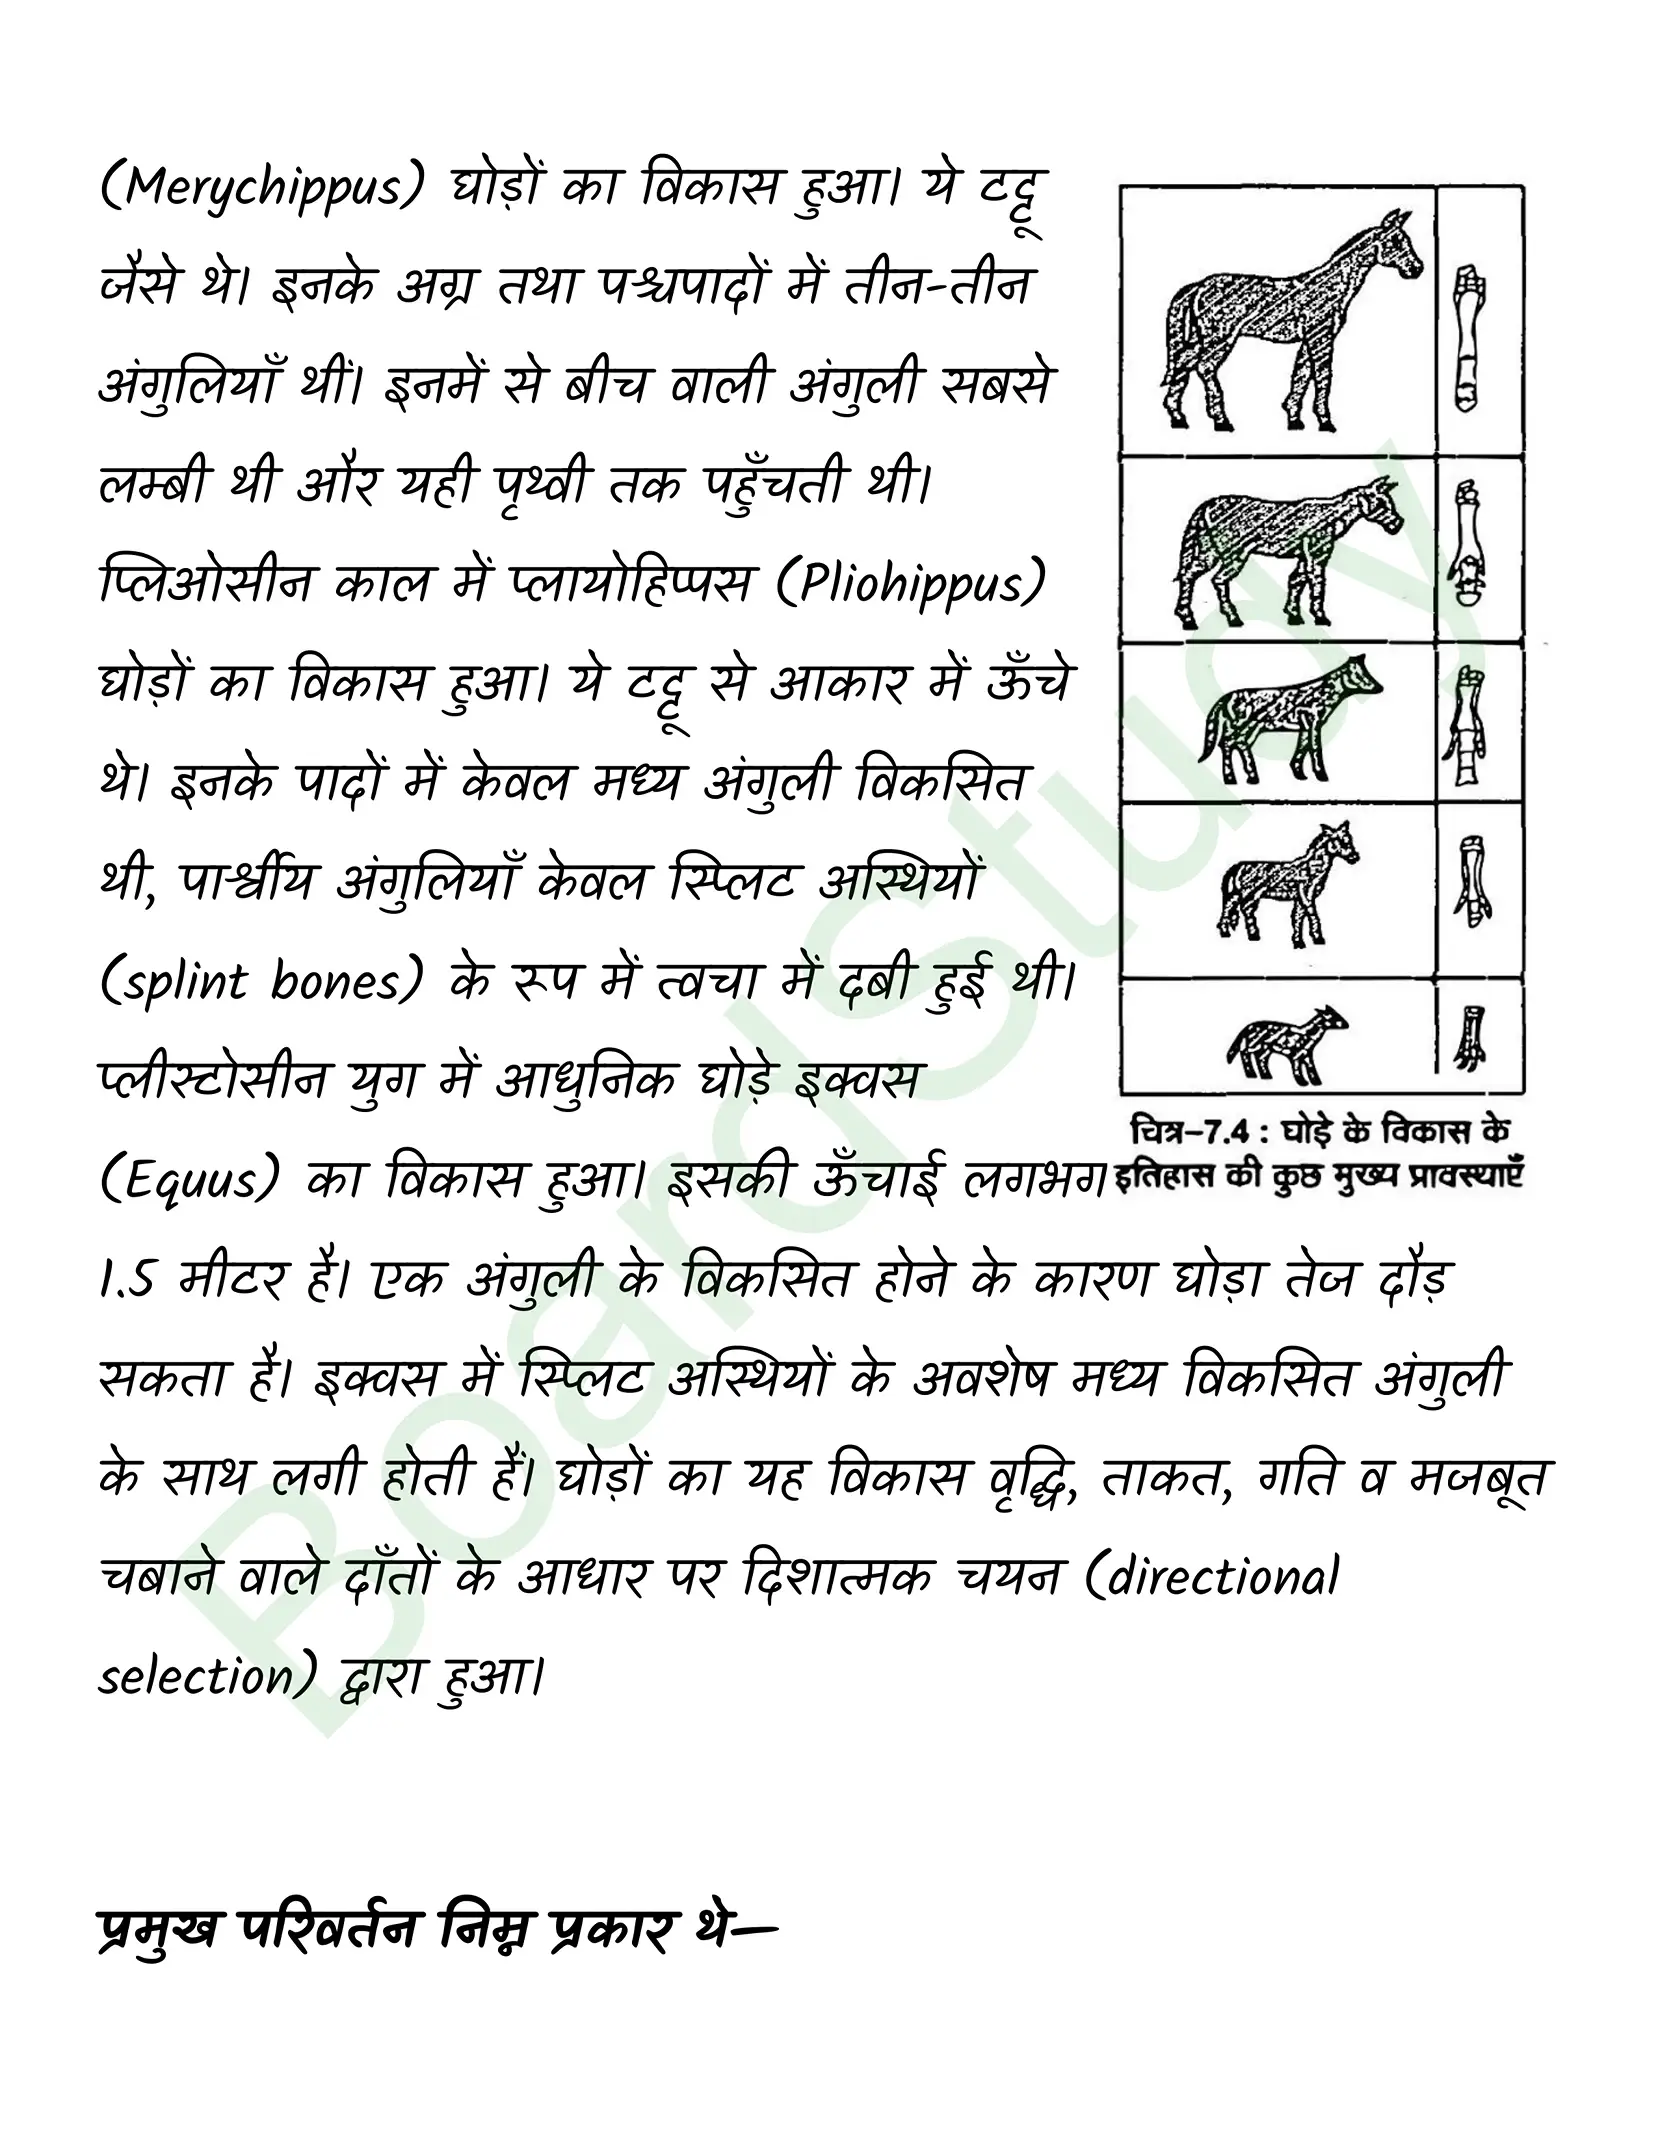 (Merychippus) घोड़ों का विकास हुआ। ये टट्टू
जैसे थे। इनके अग्र तथा पश्चपादों में तीन-तीन
अंगुलियाँ थीं। इनमें से बीच वाली अंगुली सबसे
लम्बी थी और यही पृथ्वी तक पहुँचती थी।
प्लिओसीन काल में प्लायोहिप्पस (Pliohippus)
घोड़ों का विकास हुआ। ये टट्टू से आकार में ऊँचे
थे। इनके पादों में केवल मध्य अंगुली विकसित
थी, पार्श्वीय अंगुलियाँ केवल स्प्लिट अस्थियों
(splint bones) के रूप में त्वचा में दबी हुई थी।
प्लीस्टोसीन युग में आधुनिक घोड़े इक्वस
(Equus) का विकास हुआ। इसकी ऊँचाई लगभग
1.5 मीटर है। एक अंगुली के विकसित होने के कारण घोड़ा तेज दौड़
सकता है। इक्वस में स्प्लिट अस्थियों के अवशेष मध्य विकसित अंगुली
के साथ लगी होती हैं। घोड़ों का यह विकास वृद्धि, ताकत, गति व मजबूत
चबाने वाले दाँतों के आधार पर दिशात्मक चयन (directional
selection) द्वारा हुआ।
चित्र-7.4 : घोड़े के विकास के
इतिहास की कुछ मुख्य प्रावस्थाएँ
प्रमुख परिवर्तन निम्न प्रकार थे—
BoardStudy